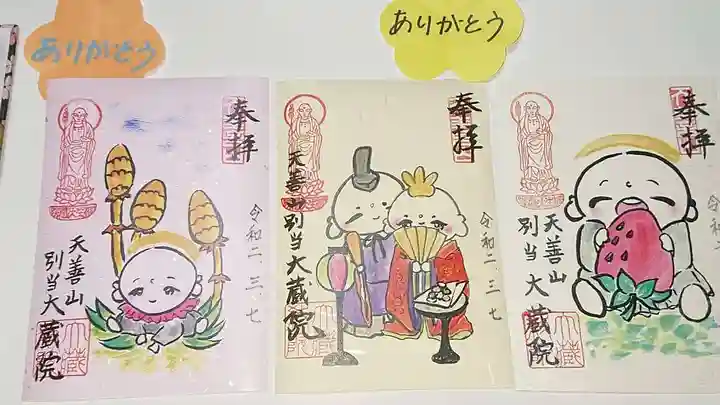 ありがとう
ありがとう
奉拝
令和二 三 七
天善山
別当大蔵院
奉拝
令和二 三 七
天善山
別当大蔵院
奉拝
令和
天善山
別当大蔵院